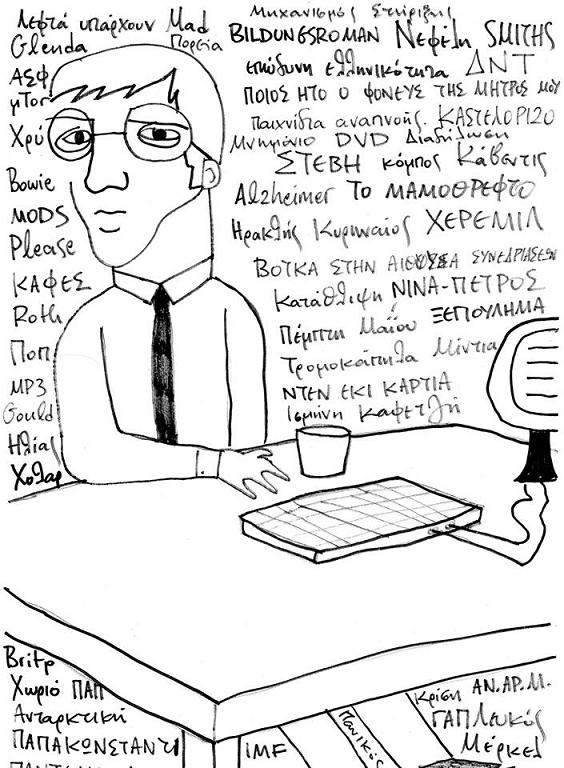 Λεφτά υπάρχουν Mad
Glenda Πορεία
ΑΣΦ
μΤοr
Χρύ
Bowie
MODS
Please
ΚΑΦΕΣ
Roth
Ποπ
MP3
Gould
Ηλίας
Χολαρ
Μηχανισμός Στήριξης
BILDUNGSROMAN Νεφέλη SMITHS
επώδυνη ελληνικότητα ΔΝΤ
ΠΟΙΟΣ ΗΤΟ Ο ΦΟΝΕΥΣ ΤΗΣ ΜΗΤΡΟΣ ΜΟΥ
Παιχνίδια αναπνοής. ΚΑΣΤΕΛΟΡΙΖΟ
Μνημόνιο DVD Διαδήλωση
ΣΤΕΒΗ κόμπος Κάβεντις
Alzheimer ΤΟ ΜΑΜΟΘΡΕΦΤΟ
Ηρακλής Κυρηναίος ΧΕΡΕΜΙΛ
ΒΟΤΚΑ ΣΤΗΝ ΑΙΘΟΥΣΑ ΣΥΝΕΔΡΙΑΣΕΩΝ
Κατάθλιψη ΝΙΝΑ-ΠΕΤΡΟΣ
Πέμπτη Μαΐου ΞΕΠΟΥΛΗΜΑ
Τρομολάπηθα Μίντια
ΝΤΕΝ ΕΚΙ ΚΑΡΤΙΑ
Ισμήνη Καφετζή
Britp
Χωριό ΠΑΠ
Ανταρκτική
ΠΑΠΑΚΩΝΣΤΑΝΤΙ
IMF
Πανικός
κρίση ΑΝ.ΑΡ.Μ.
ΓΑΠ Λευκός
Μέρκελ